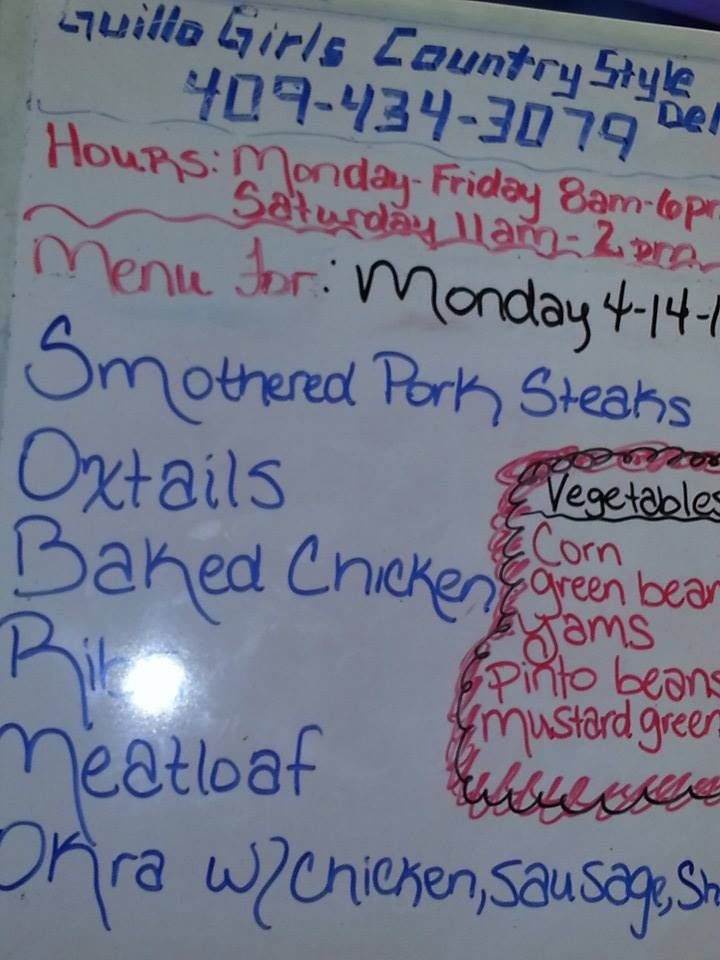 Guillo Girls Country Style
Del
409-434-3079
Hours: Monday-Friday 8am-6pm
Saturday 11am-2pm
Menu for: Monday 4-14-1
Smothered Pork Steaks
Oxtails
Baked Chicken
Ribs
Meatloaf
Okra w/chicken, sausage, Sh
Vegetables
Corn
green bean
yams
pinto beans
mustard green